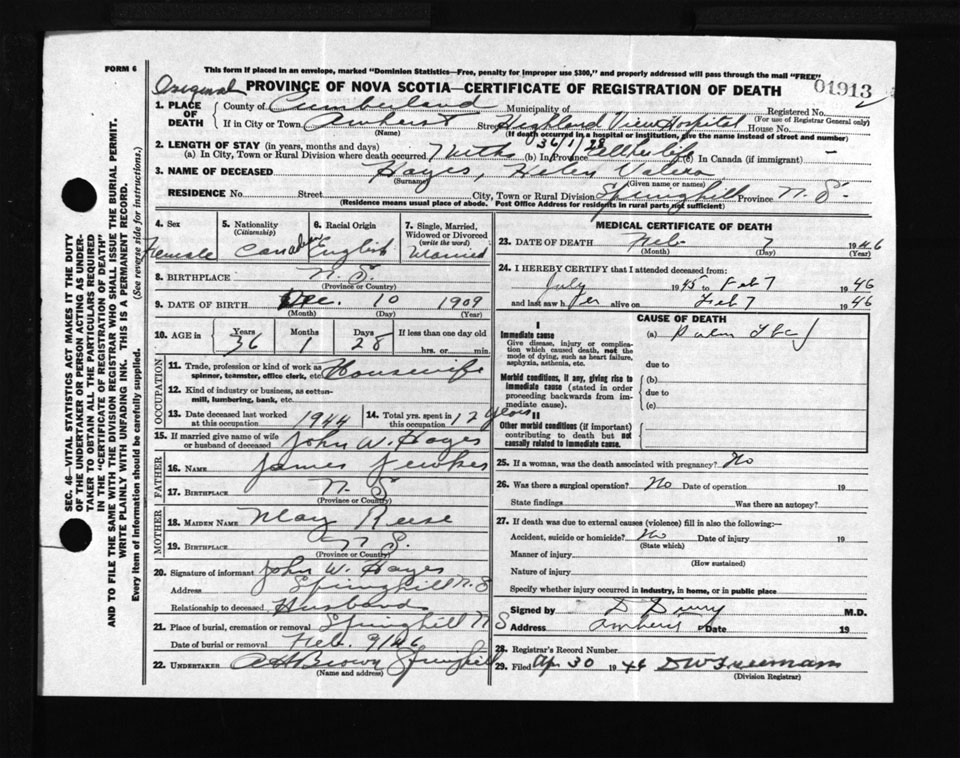 FORM 6
This form if placed in an envelope, marked "Dominion Statistics—Free, penalty for improper use $300," and properly addressed will pass through the mail "FREE"
Original PROVINCE OF NOVA SCOTIA—CERTIFICATE OF REGISTRATION OF DEATH 01913
1. PLACE OF DEATH
County of Cumberland Municipality of Registered No.
(For use of Registrar General only)
If in City or Town Amherst Street Highland View Hospital House No.
(Name) (If death occurred in a hospital or institution, give the name instead of street and number)
2. LENGTH OF STAY (in years, months and days) 36/1/28
(a) In City, Town or Rural Division where death occurred 7 Mths (b) In Province All her life (c) In Canada (if immigrant) —
3. NAME OF DECEASED Hayes, Helen
(Surname) (Given name or names)
RESIDENCE No. Street City, Town or Rural Division Springhill Province N. S.
(Residence means usual place of abode. Post Office Address for residents in rural parts not sufficient)
4. Sex Female
5. Nationality (Citizenship) Canadian
6. Racial Origin English
7. Single, Married, Widowed or Divorced (write the word) Married
8. BIRTHPLACE N. S.
(Province or Country)
9. DATE OF BIRTH Dec. 10 1909
(Month) (Day) (Year)
10. AGE in Years 36 Months 1 Days 28 If less than one day old hrs. or min.
OCCUPATION
11. Trade, profession or kind of work as spinner, teamster, office clerk, etc. Housewife
12. Kind of industry or business, as cotton-mill, lumbering, bank, etc.
13. Date deceased last worked at this occupation 1944
14. Total yrs. spent in this occupation 12 years
15. If married give name of wife or husband of deceased John W. Hayes
FATHER
16. NAME James
17. BIRTHPLACE N. S
(Province or Country)
MOTHER
18. MAIDEN NAME May Reese
19. BIRTHPLACE N. S.
(Province or Country)
20. Signature of informant John W. Hayes
Address Springhill N. S
Relationship to deceased Husband
21. Place of burial, cremation or removal Springhill N S
Date of burial or removal Feb. 9/46
22. UNDERTAKER A H Brown Springhill
(Name and address)
MEDICAL CERTIFICATE OF DEATH
23. DATE OF DEATH Feb 7 1946
(Month) (Day) (Year)
24. I HEREBY CERTIFY that I attended deceased from:
July 1945 to Feb 7 1946
and last saw her alive on Feb 7 1946
CAUSE OF DEATH
I
Immediate cause
Give disease, injury or complication which caused death, not the mode of dying, such as heart failure, asphyxia, asthenia, etc.
(a) Pulm Tbc
due to
Morbid conditions, if any, giving rise to immediate cause (stated in order proceeding backwards from immediate cause).
(b)
due to
(c)
II
Other morbid conditions (if important) contributing to death but not causally related to immediate cause.
25. If a woman, was the death associated with pregnancy? No
26. Was there a surgical operation? No Date of operation 19
State findings Was there an autopsy?
27. If death was due to external causes (violence) fill in also the following:—
Accident, suicide or homicide? No Date of injury 19
(State which)
Manner of injury
(How sustained)
Nature of injury
Specify whether injury occurred in industry, in home, or in public place
Signed by M.D.
Address Amherst Date 19
28. Registrar's Record Number
29. Filed Apr 30 1946 D W Freeman
(Division Registrar)
SEC. 46—VITAL STATISTICS ACT MAKES IT THE DUTY OF THE UNDERTAKER OR PERSON ACTING AS UNDERTAKER TO OBTAIN ALL THE PARTICULARS REQUIRED IN THE "CERTIFICATE OF REGISTRATION OF DEATH" AND TO FILE THE SAME WITH THE DIVISION REGISTRAR WHO SHALL ISSUE THE BURIAL PERMIT.
WRITE PLAINLY WITH UNFADING INK. THIS IS A PERMANENT RECORD.
Every item of information should be carefully supplied. (See reverse side for instructions.)